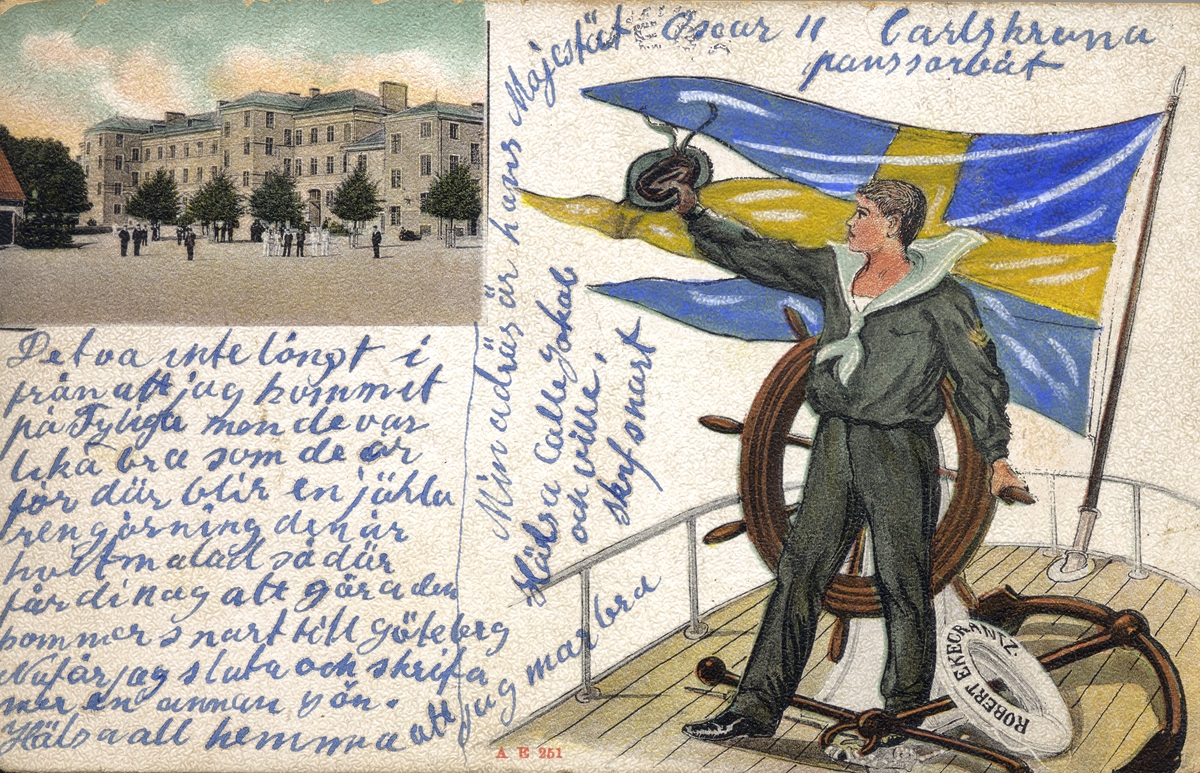 Min adrées är hans Majestät Oscar II Carlskrona
panssorbåt
Hälsa Calle Jokob
och ville,
skrif snart
Det va inte långt i
från att jag kommit
på Fylgia men de var
lika bra som de är
för där blir en jäkla
rengörning den är
hvitmalad så där
får di nog att göra den
kommer snart till Göteborg
Nu får jag sluta och skrifa
mer en annan gön.
Hälsa all hemma att jag mar bra
ROBERT EKECRANTZ
A E 251